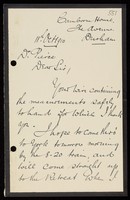 House,
The Avenue,
Durham
Dr Pierce
Dear Sir,
Yours containing
the measurements safely
to hand for which I thank
you.
I hope to come thro
to York tomorrow morning
by the 8-20 train, and
will come straight up
to the Retreat. I shall